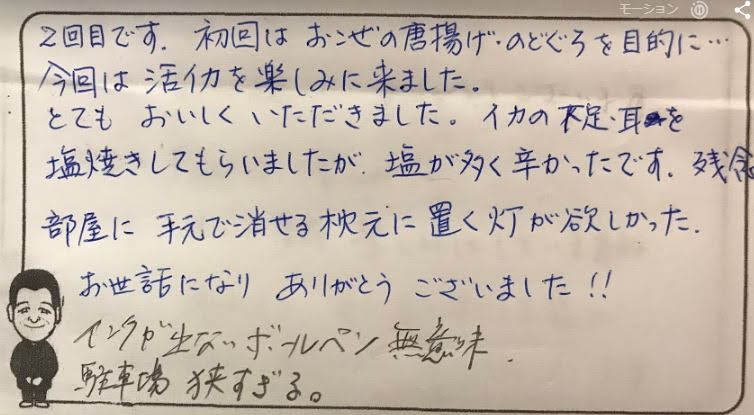 モーション
2回目です. 初回は おこぜの唐揚げ・のどぐろを目的に…
今回は 活イカを楽しみに来ました。
とても おいしく いただきました。イカの 足・耳を
塩焼きしてもらいましたが 塩が多く辛かったです. 残念
部屋に 手元で消せる枕元に 置く灯が欲しかった.
お世話になり ありがとう ございました!!
インクが出ないボールペン 無意味.
駐車場 狭すぎる。